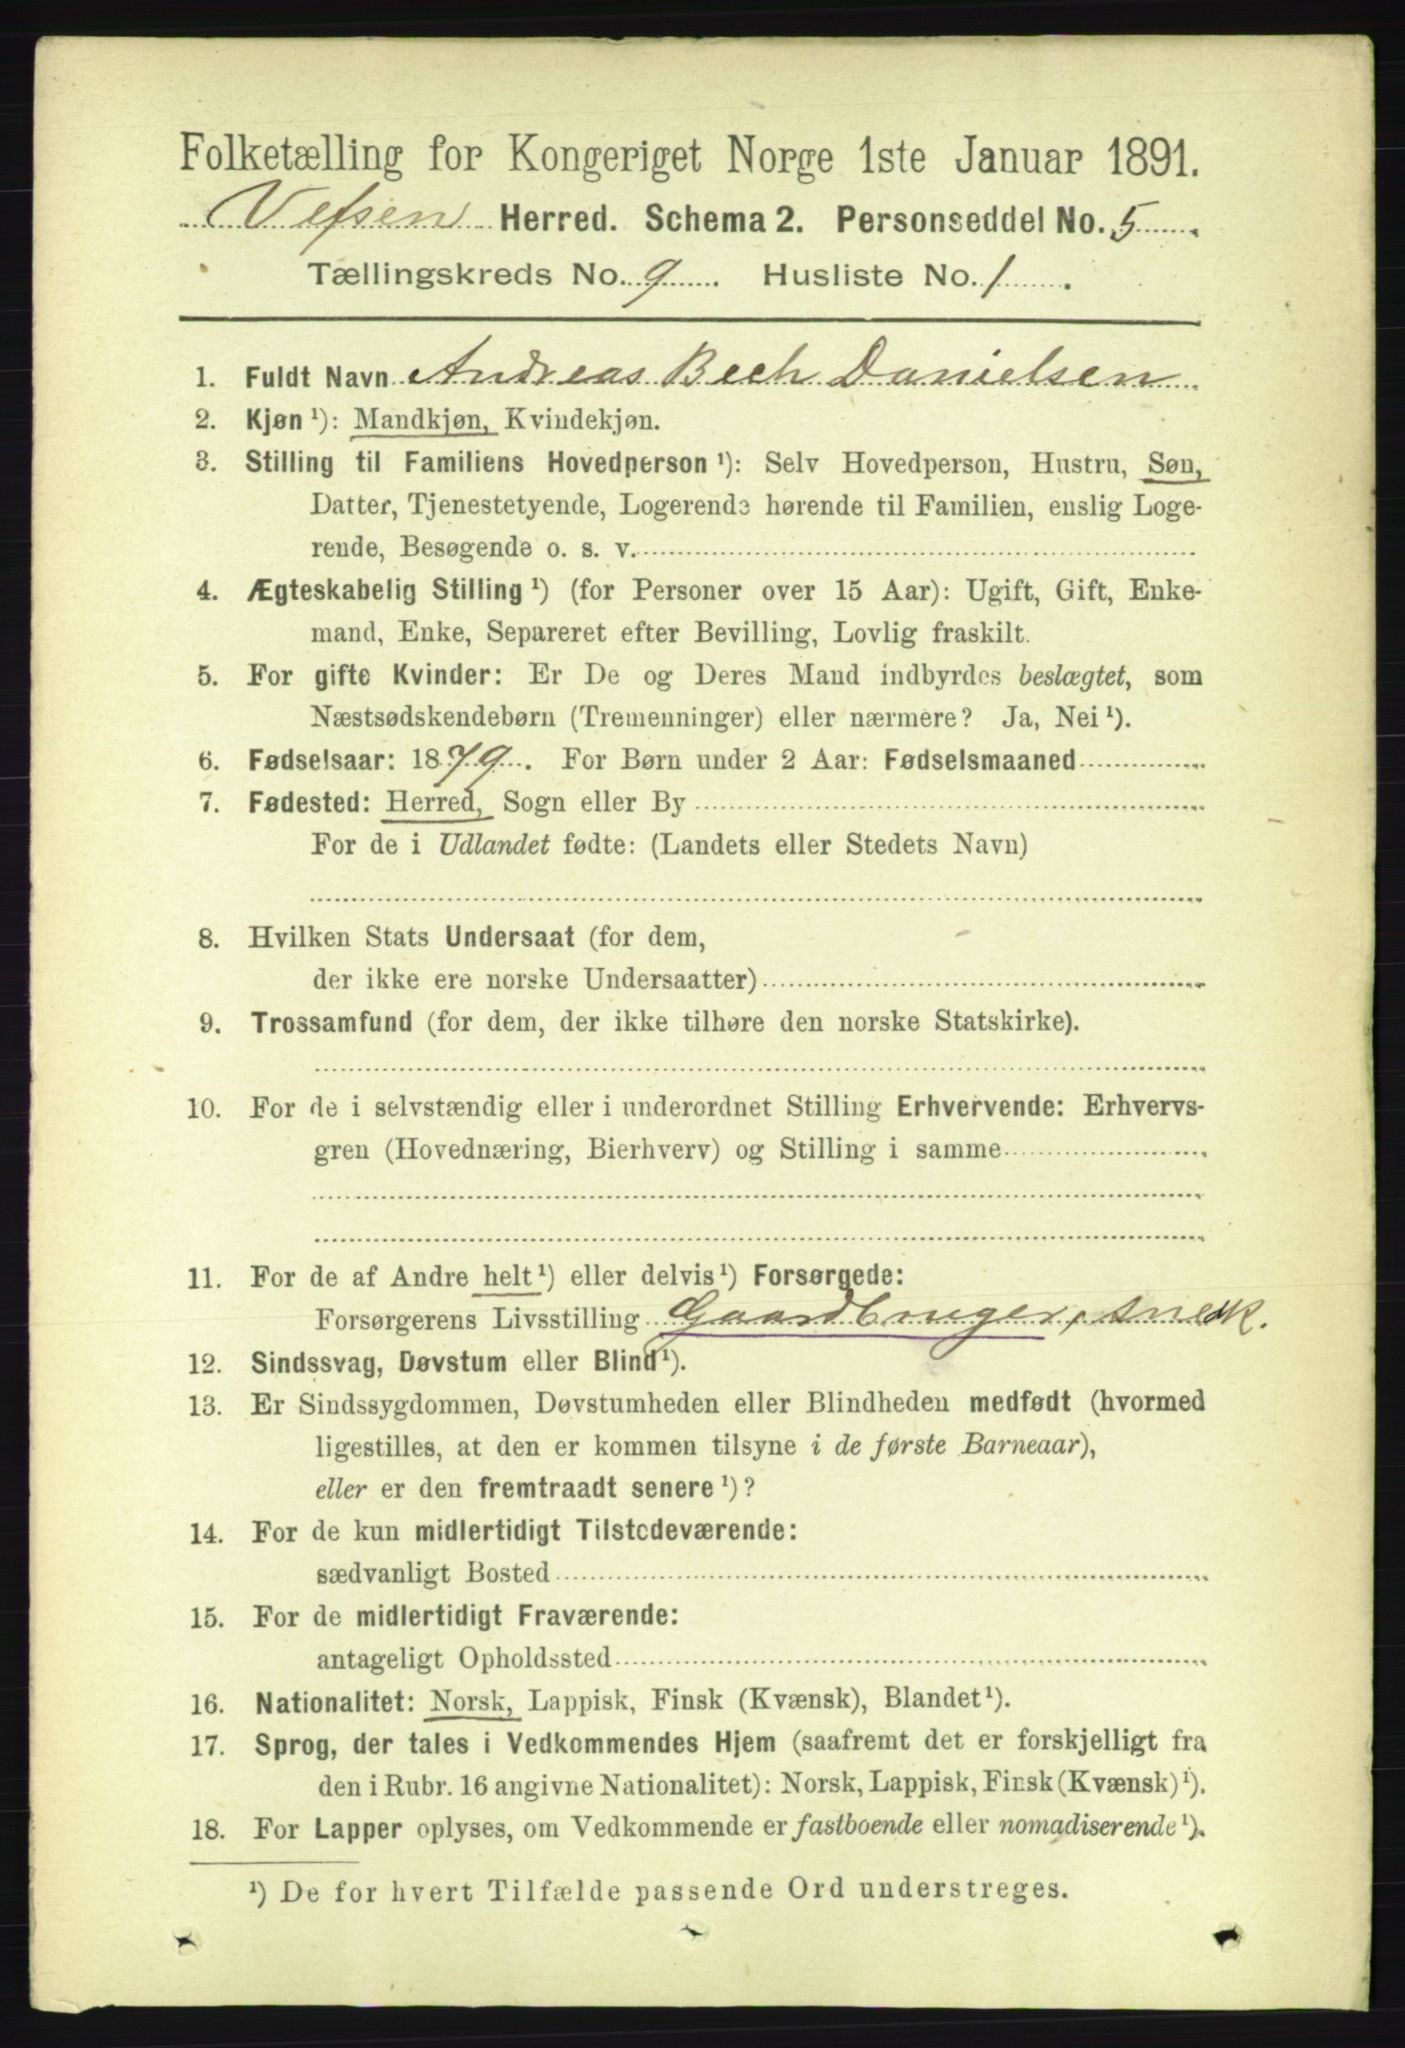 Folketælling for Kongeriget Norge 1ste Januar 1891.
Vefsen Herred. Schema 2. Personseddel No. 5
Tællingskreds No. 9 Husliste No. 1
1. Fuldt Navn Andreas Bech Danielsen
2. Kjøn ¹): Mandkjøn, Kvindekjøn.
3. Stilling til Familiens Hovedperson ¹): Selv Hovedperson, Hustru, Søn,
Datter, Tjenestetyende, Logerende hørende til Familien, enslig Loge-
rende, Besøgende o. s. v.
4. Ægteskabelig Stilling ¹) (for Personer over 15 Aar): Ugift, Gift, Enke-
mand, Enke, Separeret efter Bevilling, Lovlig fraskilt.
5. For gifte Kvinder: Er De og Deres Mand indbyrdes beslægtet, som
Næstsødskendebørn (Tremenninger) eller nærmere? Ja, Nei ¹).
6. Fødselsaar: 1879. For Børn under 2 Aar: Fødselsmaaned
7. Fødested: Herred, Sogn eller By
For de i Udlandet fødte: (Landets eller Stedets Navn)
8. Hvilken Stats Undersaat (for dem,
der ikke ere norske Undersaatter)
9. Trossamfund (for dem, der ikke tilhøre den norske Statskirke).
10. For de i selvstændig eller i underordnet Stilling Erhvervende: Erhvervs-
gren (Hovednæring, Bierhverv) og Stilling i samme
11. For de af Andre helt ¹) eller delvis ¹) Forsørgede:
Forsørgerens Livsstilling Gaardbruger,
12. Sindssvag, Døvstum eller Blind ¹).
13. Er Sindssygdommen, Døvstumheden eller Blindheden medfødt (hvormed
ligestilles, at den er kommen tilsyne i de første Barneaar),
eller er den fremtraadt senere ¹)?
14. For de kun midlertidigt Tilstedeværende:
sædvanligt Bosted
15. For de midlertidigt Fraværende:
antageligt Opholdssted
16. Nationalitet: Norsk, Lappisk, Finsk (Kvænsk), Blandet ¹).
17. Sprog, der tales i Vedkommendes Hjem (saafremt det er forskjelligt fra
den i Rubr. 16 angivne Nationalitet): Norsk, Lappisk, Finsk (Kvænsk) ¹).
18. For Lapper oplyses, om Vedkommende er fastboende eller nomadiserende ¹).
¹) De for hvert Tilfælde passende Ord understreges.